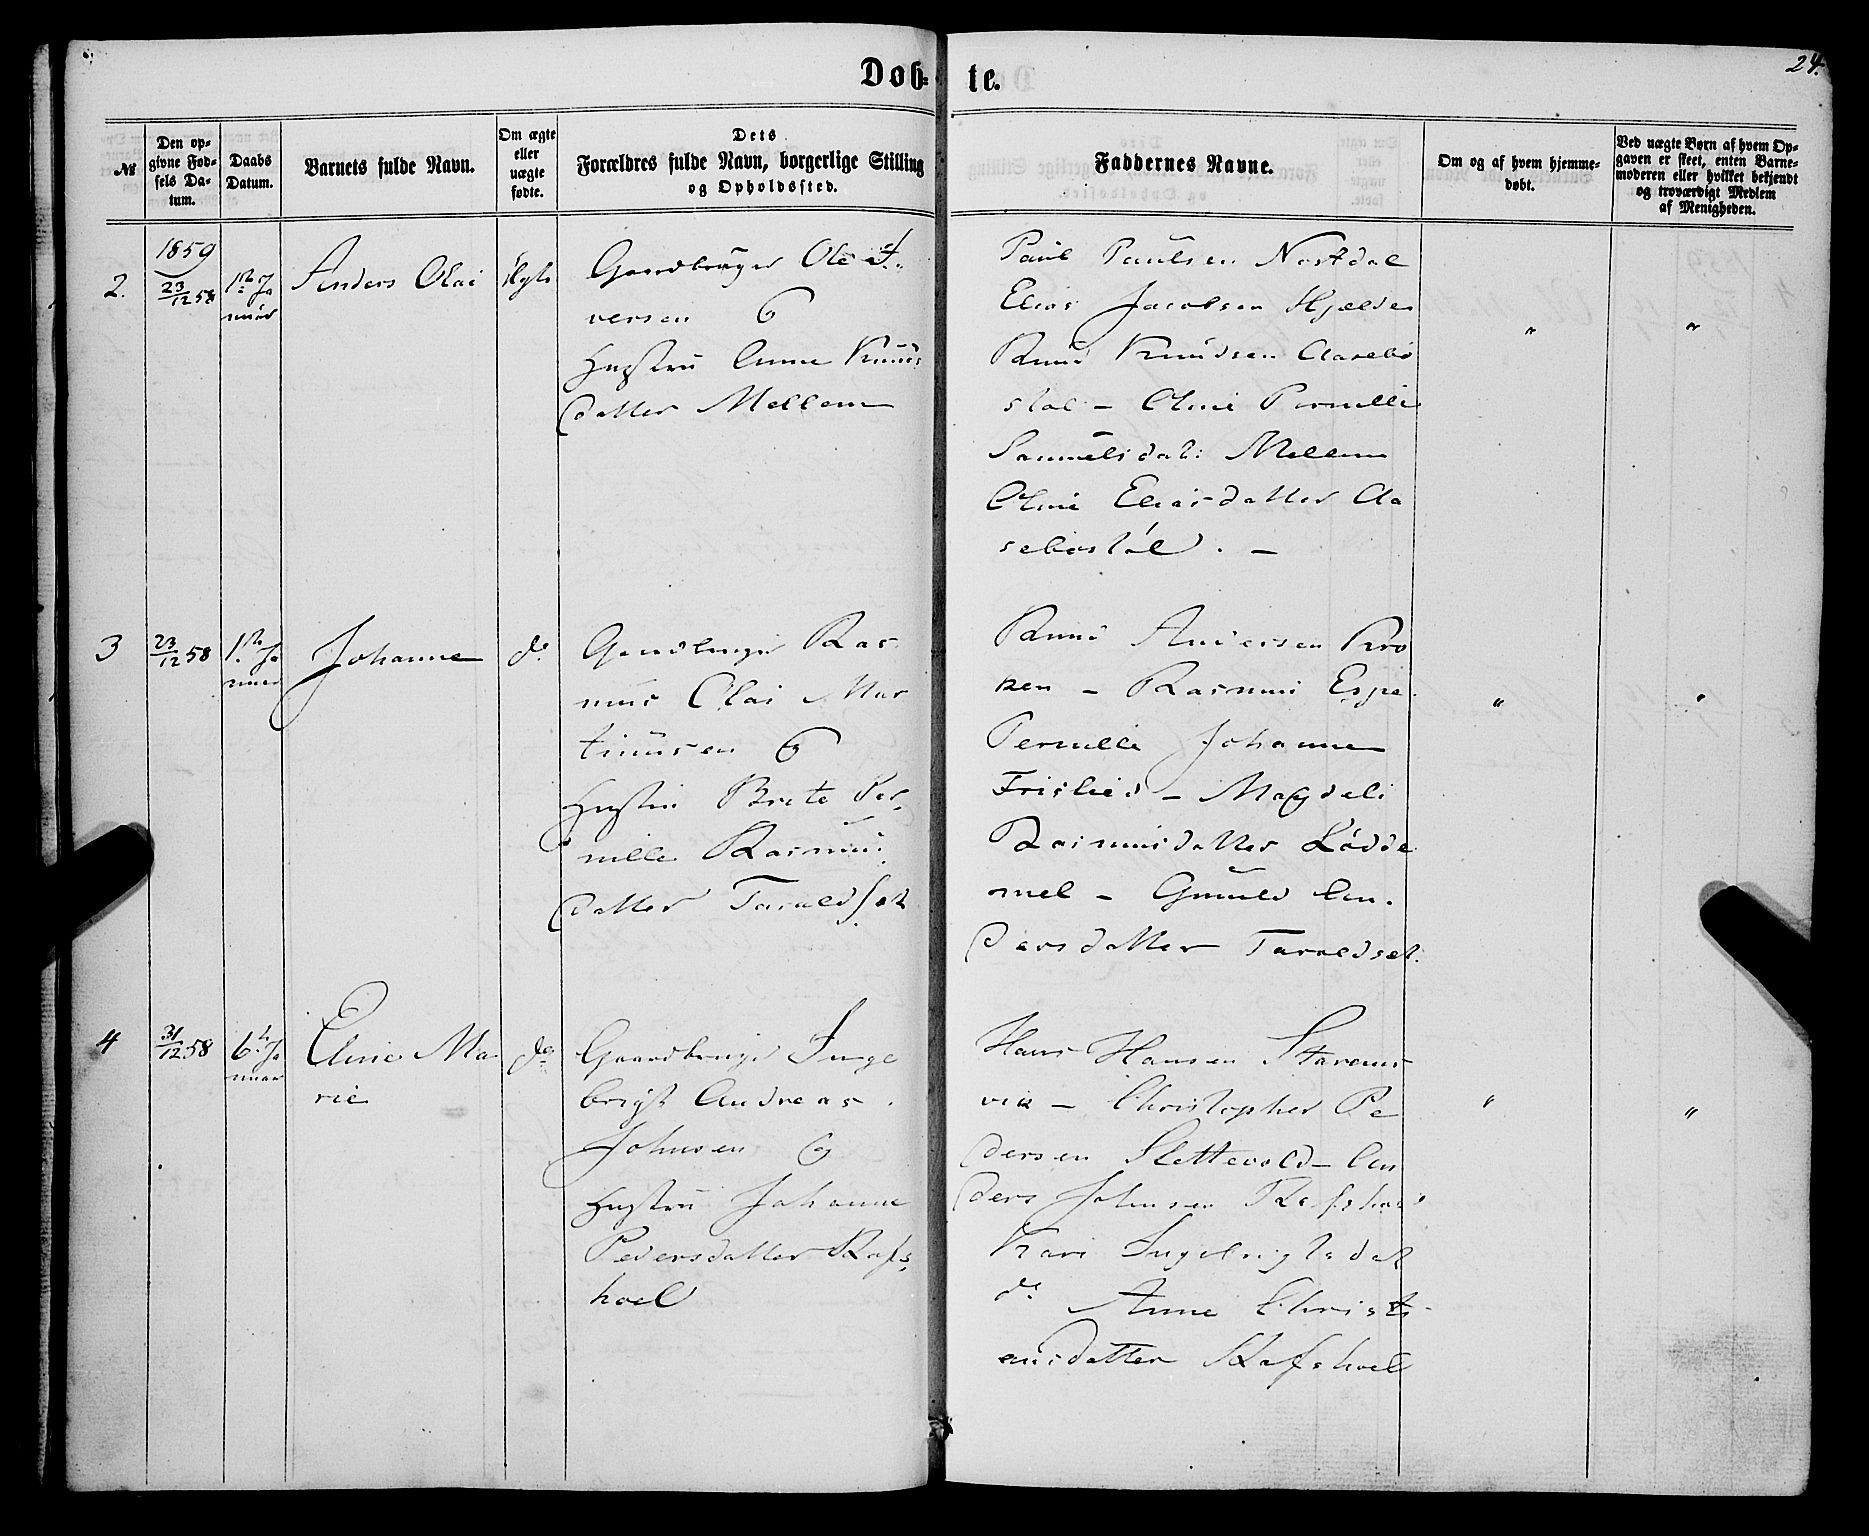 Døb-
te.
24.
№
Den op-
givne Fød-
sels Da-
tum.
Daabs
Datum.
Barnets fulde Navn.
Om ægte
eller
uægte
fødte.
Dets
Forældres fulde Navn, borgerlige Stilling
og Opholdssted.
Faddernes Navne.
Om og af hvem hjemme-
døbt.
Ved uægte Børn af hvem Op-
gaven er skeet, enten Barne-
moderen eller hvilket bekjendt
og troværdigt Medlem
af Menigheden.
1859
2.
23/12 58
1ste Ja
nuar
Anders Olai
Ægte
Gaardbruger Ole I-
versen &
Hustru Anne Knuds
datter Mellem
Paul Paulsen Nordal
Elias Jacobsen Hjelde
Knud Knudsen Aasebø
støl - Oline Pernille
Samuelsdat: Mellem
Oline Eliasdatter Aa
sebøstøl. -
"
"
3
23/12 58
1ste Ja
nuar
Johanne
do
Gaardbruger Ras
mus Olai Mar
tinusen &
Hustru Brete Per-
nille Rasmus
datter Taraldset
Knud Andersen Kro
ken - Rasmus Espe
Pernille Johanne
Frislied - Magdeli
Rasmusdatter Lødde
mel - Gunild An-
dersdatter Taraldset.
"
"
4
31/12 58
6te Ja
nuar
Eline Ma
rie
do
Gaardbruger Inge
brigt Andreas
Johnsen &
Hustru Johanne
Pedersdatter Rafs-
hoel
Hans Hansen Stavens
vik - Christopher Pe
dersen Slettevold - An
ders Johnsen Rafshoel
Kari Ingebrigtsdat
do Anne Christi-
ansdatter Rafshoel
"
"